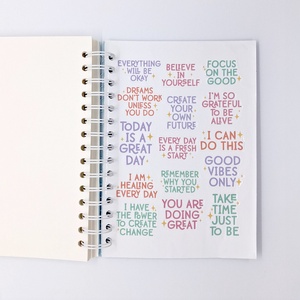 EVERYTHING
WILL BE
OKAY
DREAMS
DON'T WORK
UNLESS
YOU DO
TODAY
IS A
GREAT
DAY
I AM
HEALING
EVERY DAY
I HAVE
THE POWER
TO CREATE
CHANGE
BELIEVE
IN
YOURSELF
CREATE
YOUR
OWN
FUTURE
EVERY DAY
IS A FRESH
START
REMEMBER
WHY YOU
STARTED
YOU ARE
DOING
GREAT
FOCUS
ON THE
GOOD
I'M SO
GRATEFUL
TO BE
ALIVE
I CAN
DO THIS
GOOD
VIBES
ONLY
TAKE
TIME
JUST
TO BE